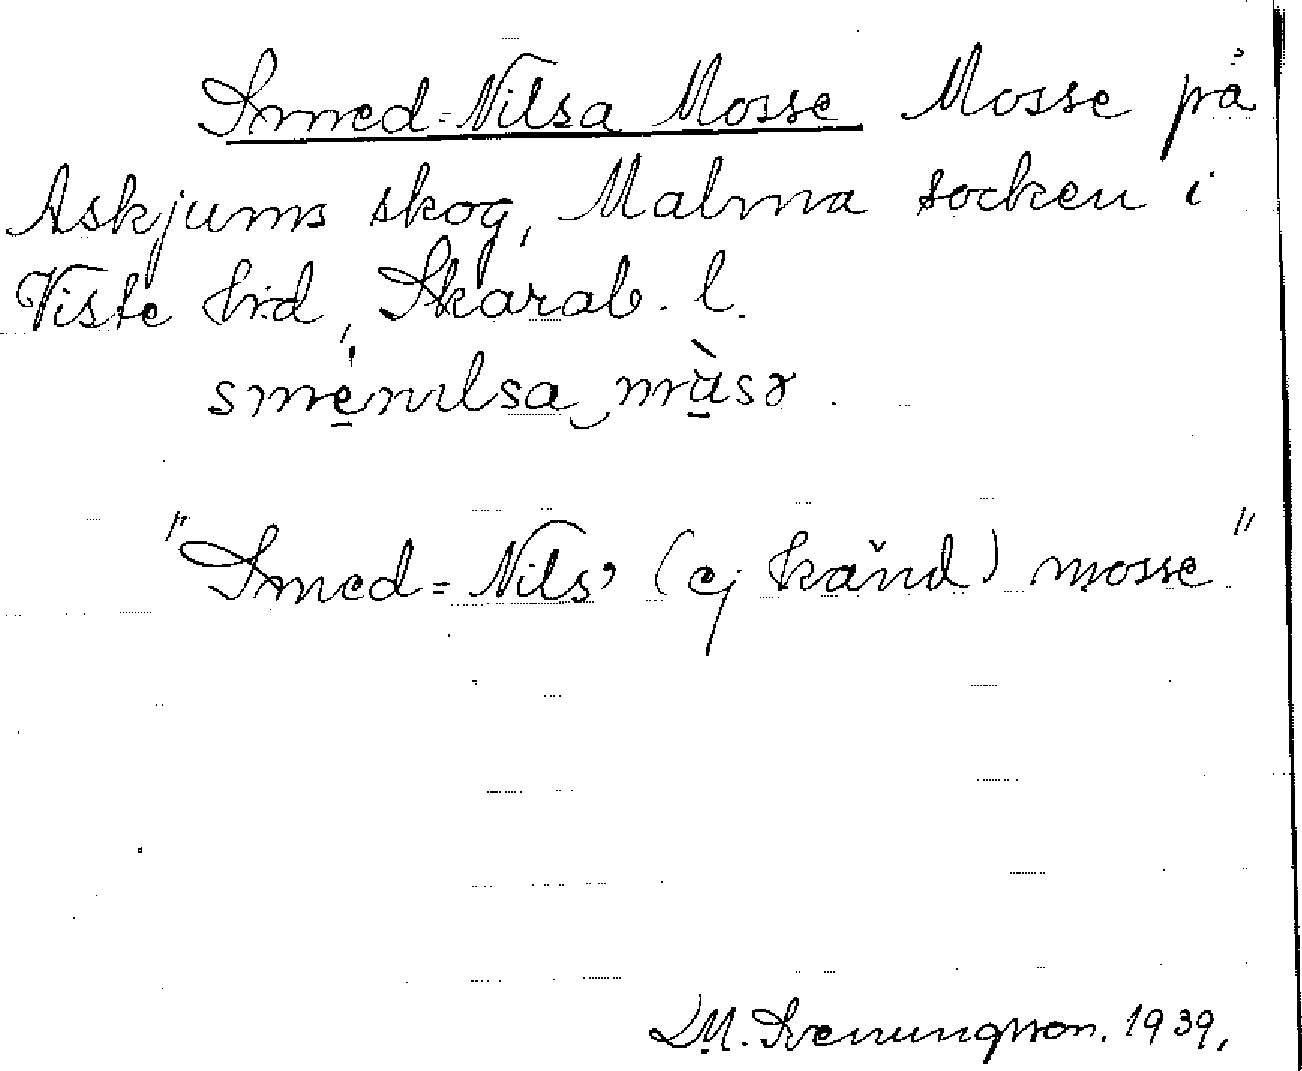 Smed-Nilsa Mosse Mosse på
Askjums skog, Malma socken i
Viste hrd, Skarab. l.
sménılsa mùsə.
"Smed=Nils' (ej känd) mosse"
D.M. Svenungsson. 1939.